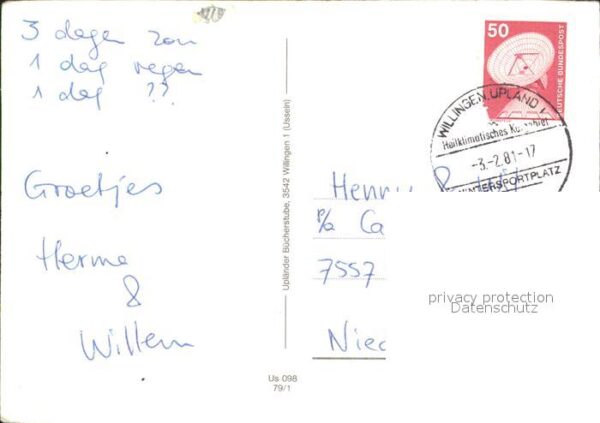 3 dagen zon
1 dag regen
1 dag ??
Groetjes
Herma
&
Willem
Upländer Bücherstube, 3542 Willingen 1 (Usseln)
Us 098
79/1
50
DEUTSCHE BUNDESPOST
WILLINGEN, UPLAND 1
Heilklimatisches
-3.-2.81-17
WINTERSPORTPLATZ
p/a Ca
7557
privacy protection
Datenschutz